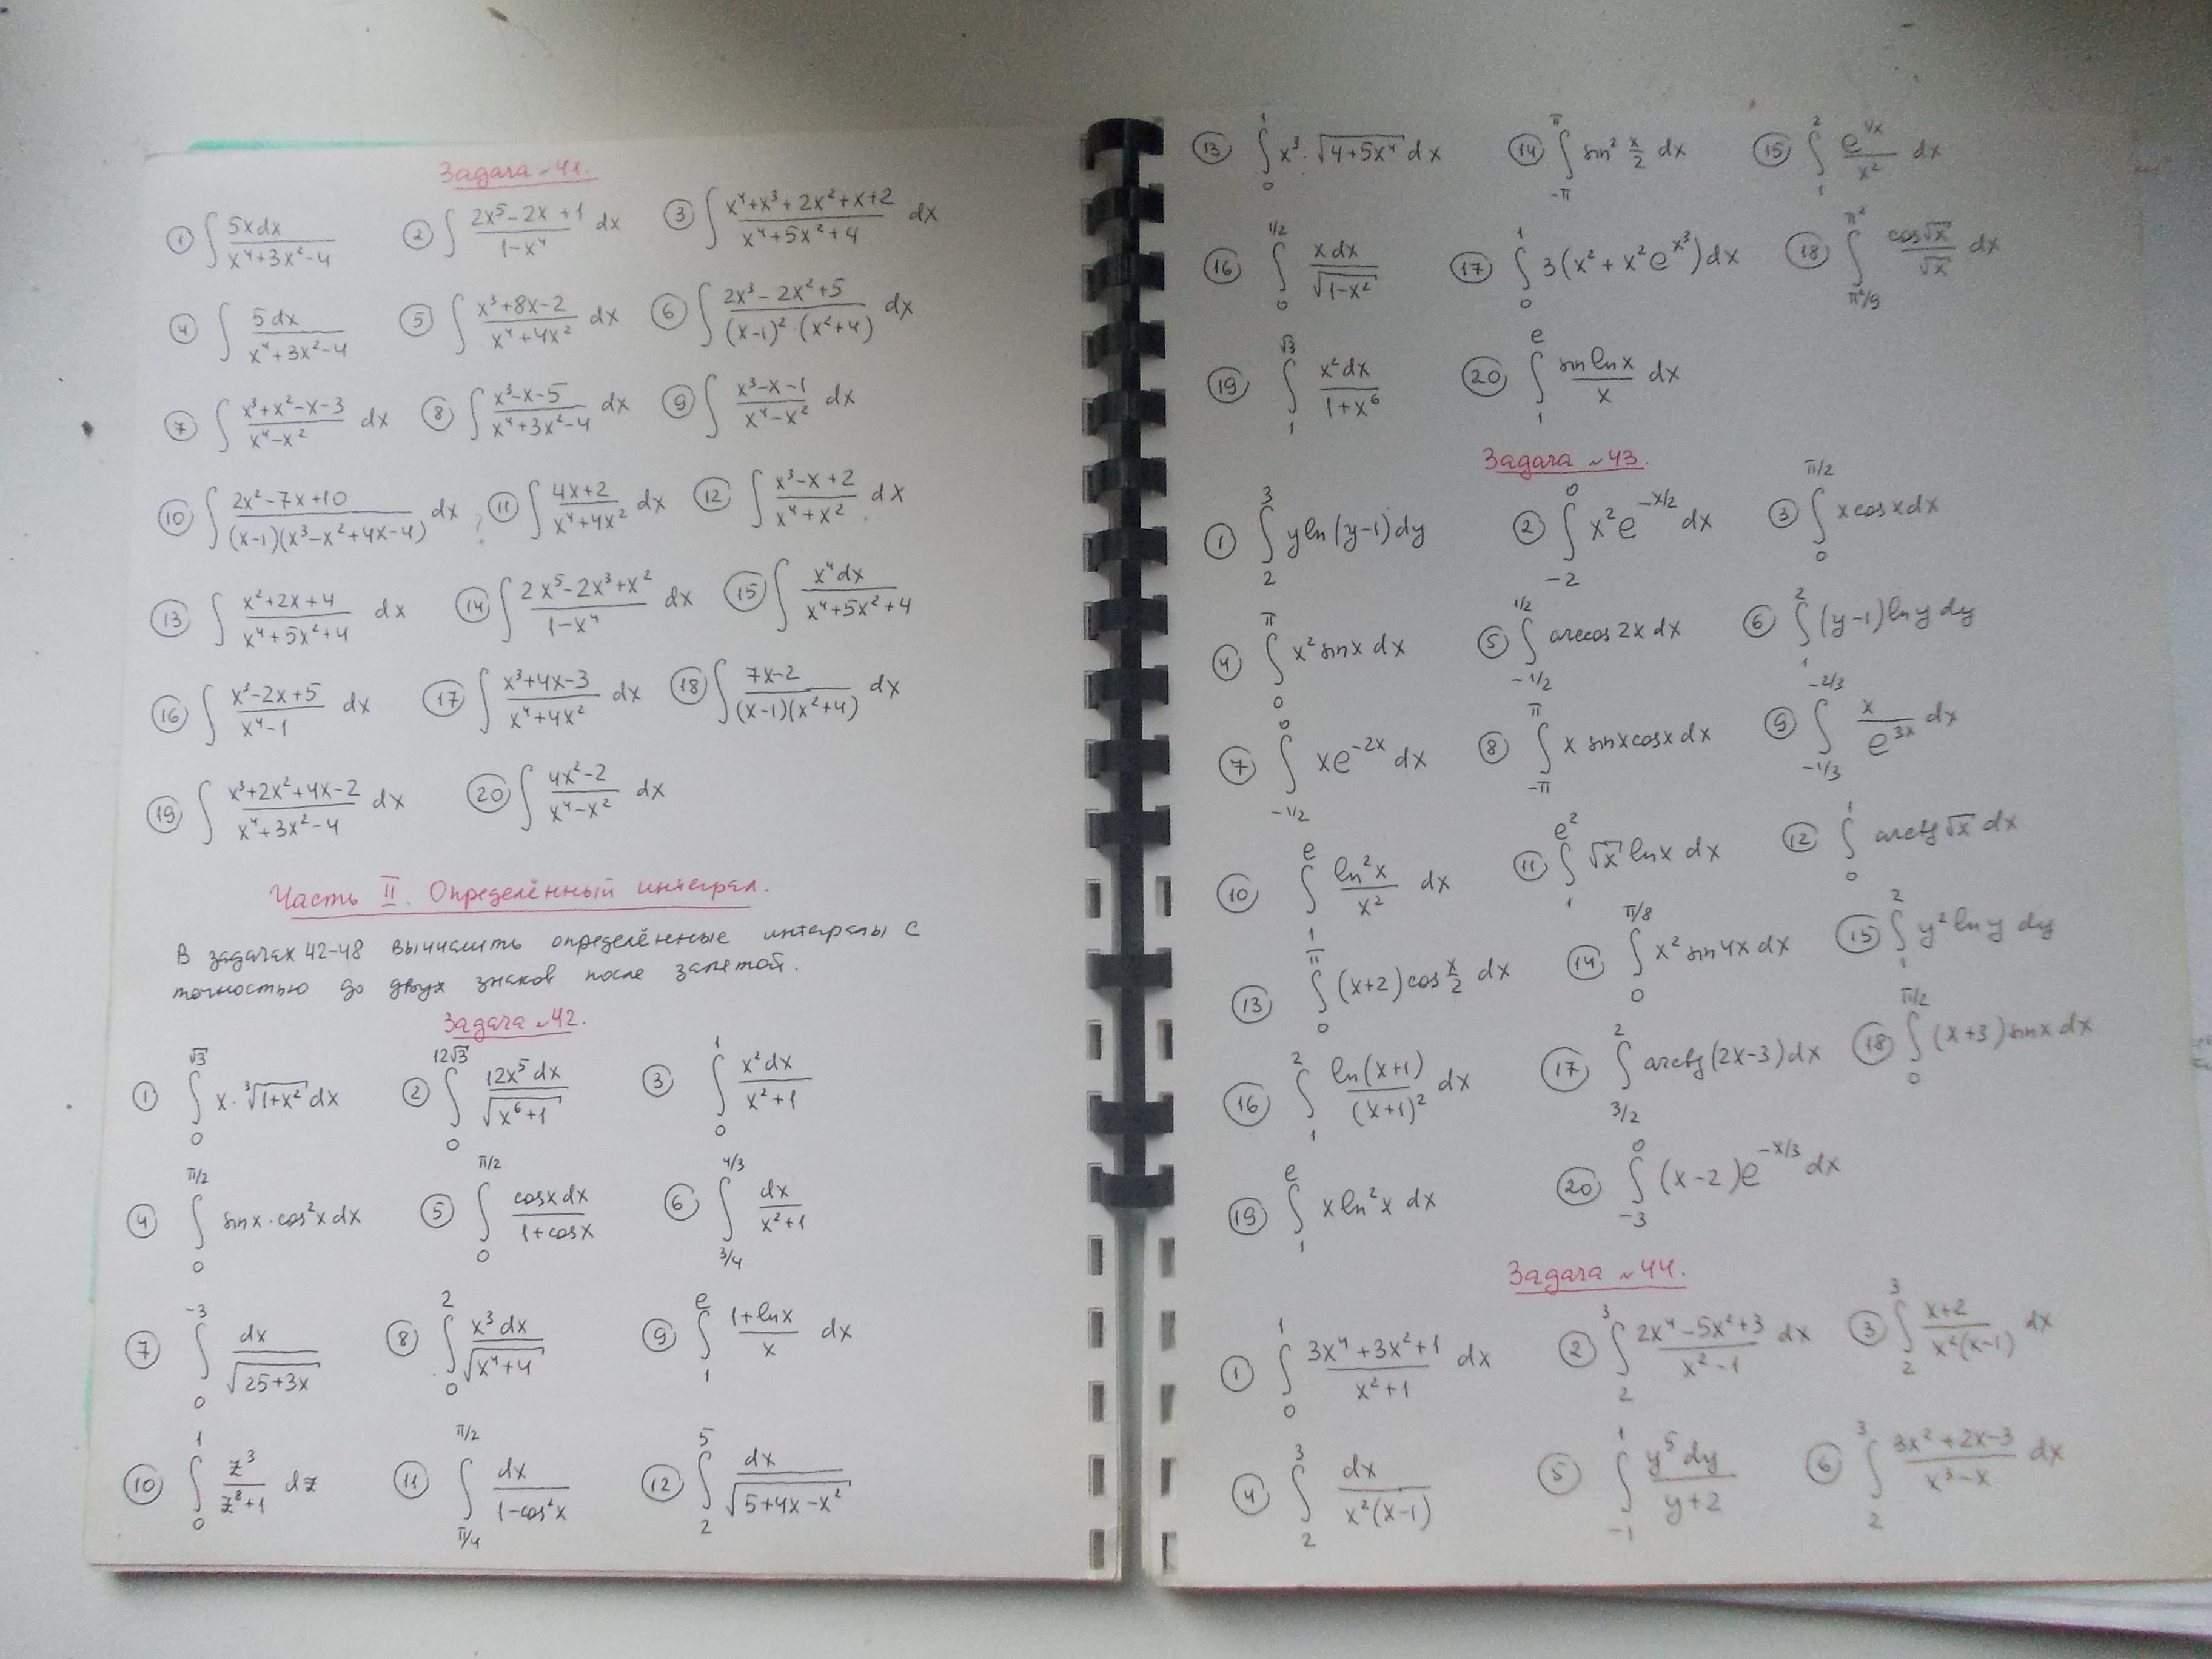 Задача №41.
① ∫ 5xdx/(x⁴+3x²-4) ② ∫ (2x⁵-2x+1)/(1-x⁴) dx ③ ∫ (x⁴+x³+2x²+x+2)/(x⁴+5x²+4) dx
④ ∫ 5dx/(x⁴+3x²-4) ⑤ ∫ (x³+8x-2)/(x⁴+4x²) dx ⑥ ∫ (2x³-2x²+5)/((x-1)²·(x²+4)) dx
⑦ ∫ (x³+x²-x-3)/(x⁴-x²) dx ⑧ ∫ (x³-x-5)/(x⁴+3x²-4) dx ⑨ ∫ (x³-x-1)/(x⁴-x²) dx
⑩ ∫ (2x²-7x+10)/((x-1)(x³-x²+4x-4)) dx ⑪ ∫ (4x+2)/(x⁴+4x²) dx ⑫ ∫ (x³-x+2)/(x⁴+x²) dx
⑬ ∫ (x²+2x+4)/(x⁴+5x²+4) dx ⑭ ∫ (2x⁵-2x³+x²)/(1-x⁴) dx ⑮ ∫ x⁴dx/(x⁴+5x²+4)
⑯ ∫ (x³-2x+5)/(x⁴-1) dx ⑰ ∫ (x³+4x-3)/(x⁴+4x²) dx ⑱ ∫ (7x-2)/((x-1)(x²+4)) dx
⑲ ∫ (x³+2x²+4x-2)/(x⁴+3x²-4) dx ⑳ ∫ (4x²-2)/(x⁴-x²) dx
Часть II. Определённый интеграл.
В задачах 42-48 вычислить определённые интегралы с
точностью до двух знаков после запятой.
Задача №42.
① ∫_0^{√3} x·∛(1+x²) dx ② ∫_0^{12√3} 12x⁵dx/√(x⁶+1) ③ ∫_0^1 x²dx/(x²+1)
④ ∫_0^{π/2} sinx·cos²xdx ⑤ ∫_0^{π/2} cosxdx/(1+cosx) ⑥ ∫_{3/4}^{4/3} dx/(x²+1)
⑦ ∫_0^{-3} dx/√(25+3x) ⑧ ∫_0^2 x³dx/√(x⁴+4) ⑨ ∫_1^e (1+lnx)/x dx
⑩ ∫_0^1 z³/(z⁸+1) dz ⑪ ∫_{π/4}^{π/2} dx/(1-cos²x) ⑫ ∫_2^5 dx/√(5+4x-x²)
⑬ ∫_0^1 x³·√(4+5x⁴) dx ⑭ ∫_{-π}^{π} sin² x/2 dx ⑮ ∫_1^2 e^{1/x}/x² dx
⑯ ∫_0^{1/2} xdx/√(1-x²) ⑰ ∫_0^1 3(x²+x²e^{x³})dx ⑱ ∫_{π²/9}^{π²} cos√x/√x dx
⑲ ∫_1^{√3} x²dx/(1+x⁶) ⑳ ∫_1^e sinlnx/x dx
Задача №43.
① ∫_2^3 yln(y-1)dy ② ∫_{-2}^0 x²e^{-x/2}dx ③ ∫_0^{π/2} xcosxdx
④ ∫_0^π x²sinx dx ⑤ ∫_{-1/2}^{1/2} arccos2x dx ⑥ ∫_1^2 (y-1)lny dy
⑦ ∫_{-1/2}^0 xe^{-2x}dx ⑧ ∫_{-π}^π x sinxcosx dx ⑨ ∫_{-1/3}^{-2/3} x/e^{3x} dx
⑩ ∫_1^e ln²x/x² dx ⑪ ∫_1^{e²} √x lnx dx ⑫ ∫_0^1 arctg√x dx
⑬ ∫_0^π (x+2)cos x/2 dx ⑭ ∫_0^{π/8} x²sin4x dx ⑮ ∫_1^2 y²lny dy
⑯ ∫_1^2 ln(x+1)/(x+1)² dx ⑰ ∫_{3/2}^2 arctg(2x-3)dx ⑱ ∫_0^{π/2} (x+3)sinx dx
⑲ ∫_1^e xln²x dx ⑳ ∫_{-3}^0 (x-2)e^{-x/3}dx
Задача №44.
① ∫_0^1 (3x⁴+3x²+1)/(x²+1) dx ② ∫_2^3 (2x⁴-5x²+3)/(x²-1) dx ③ ∫_2^3 (x+2)/(x²(x-1)) dx
④ ∫_2^3 dx/(x²(x-1)) ⑤ ∫_{-1}^1 y⁵dy/(y+2) ⑥ ∫_2^3 (3x²+2x-3)/(x³-x) dx